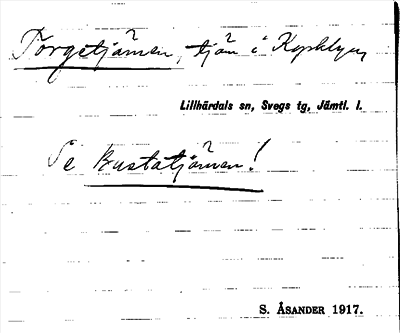 Torgetjärnen, tjärn i
Lillhärdals sn, Svegs tg, Jämtl. l.
Se Bustatjärnen!
S. ÅSANDER 1917.